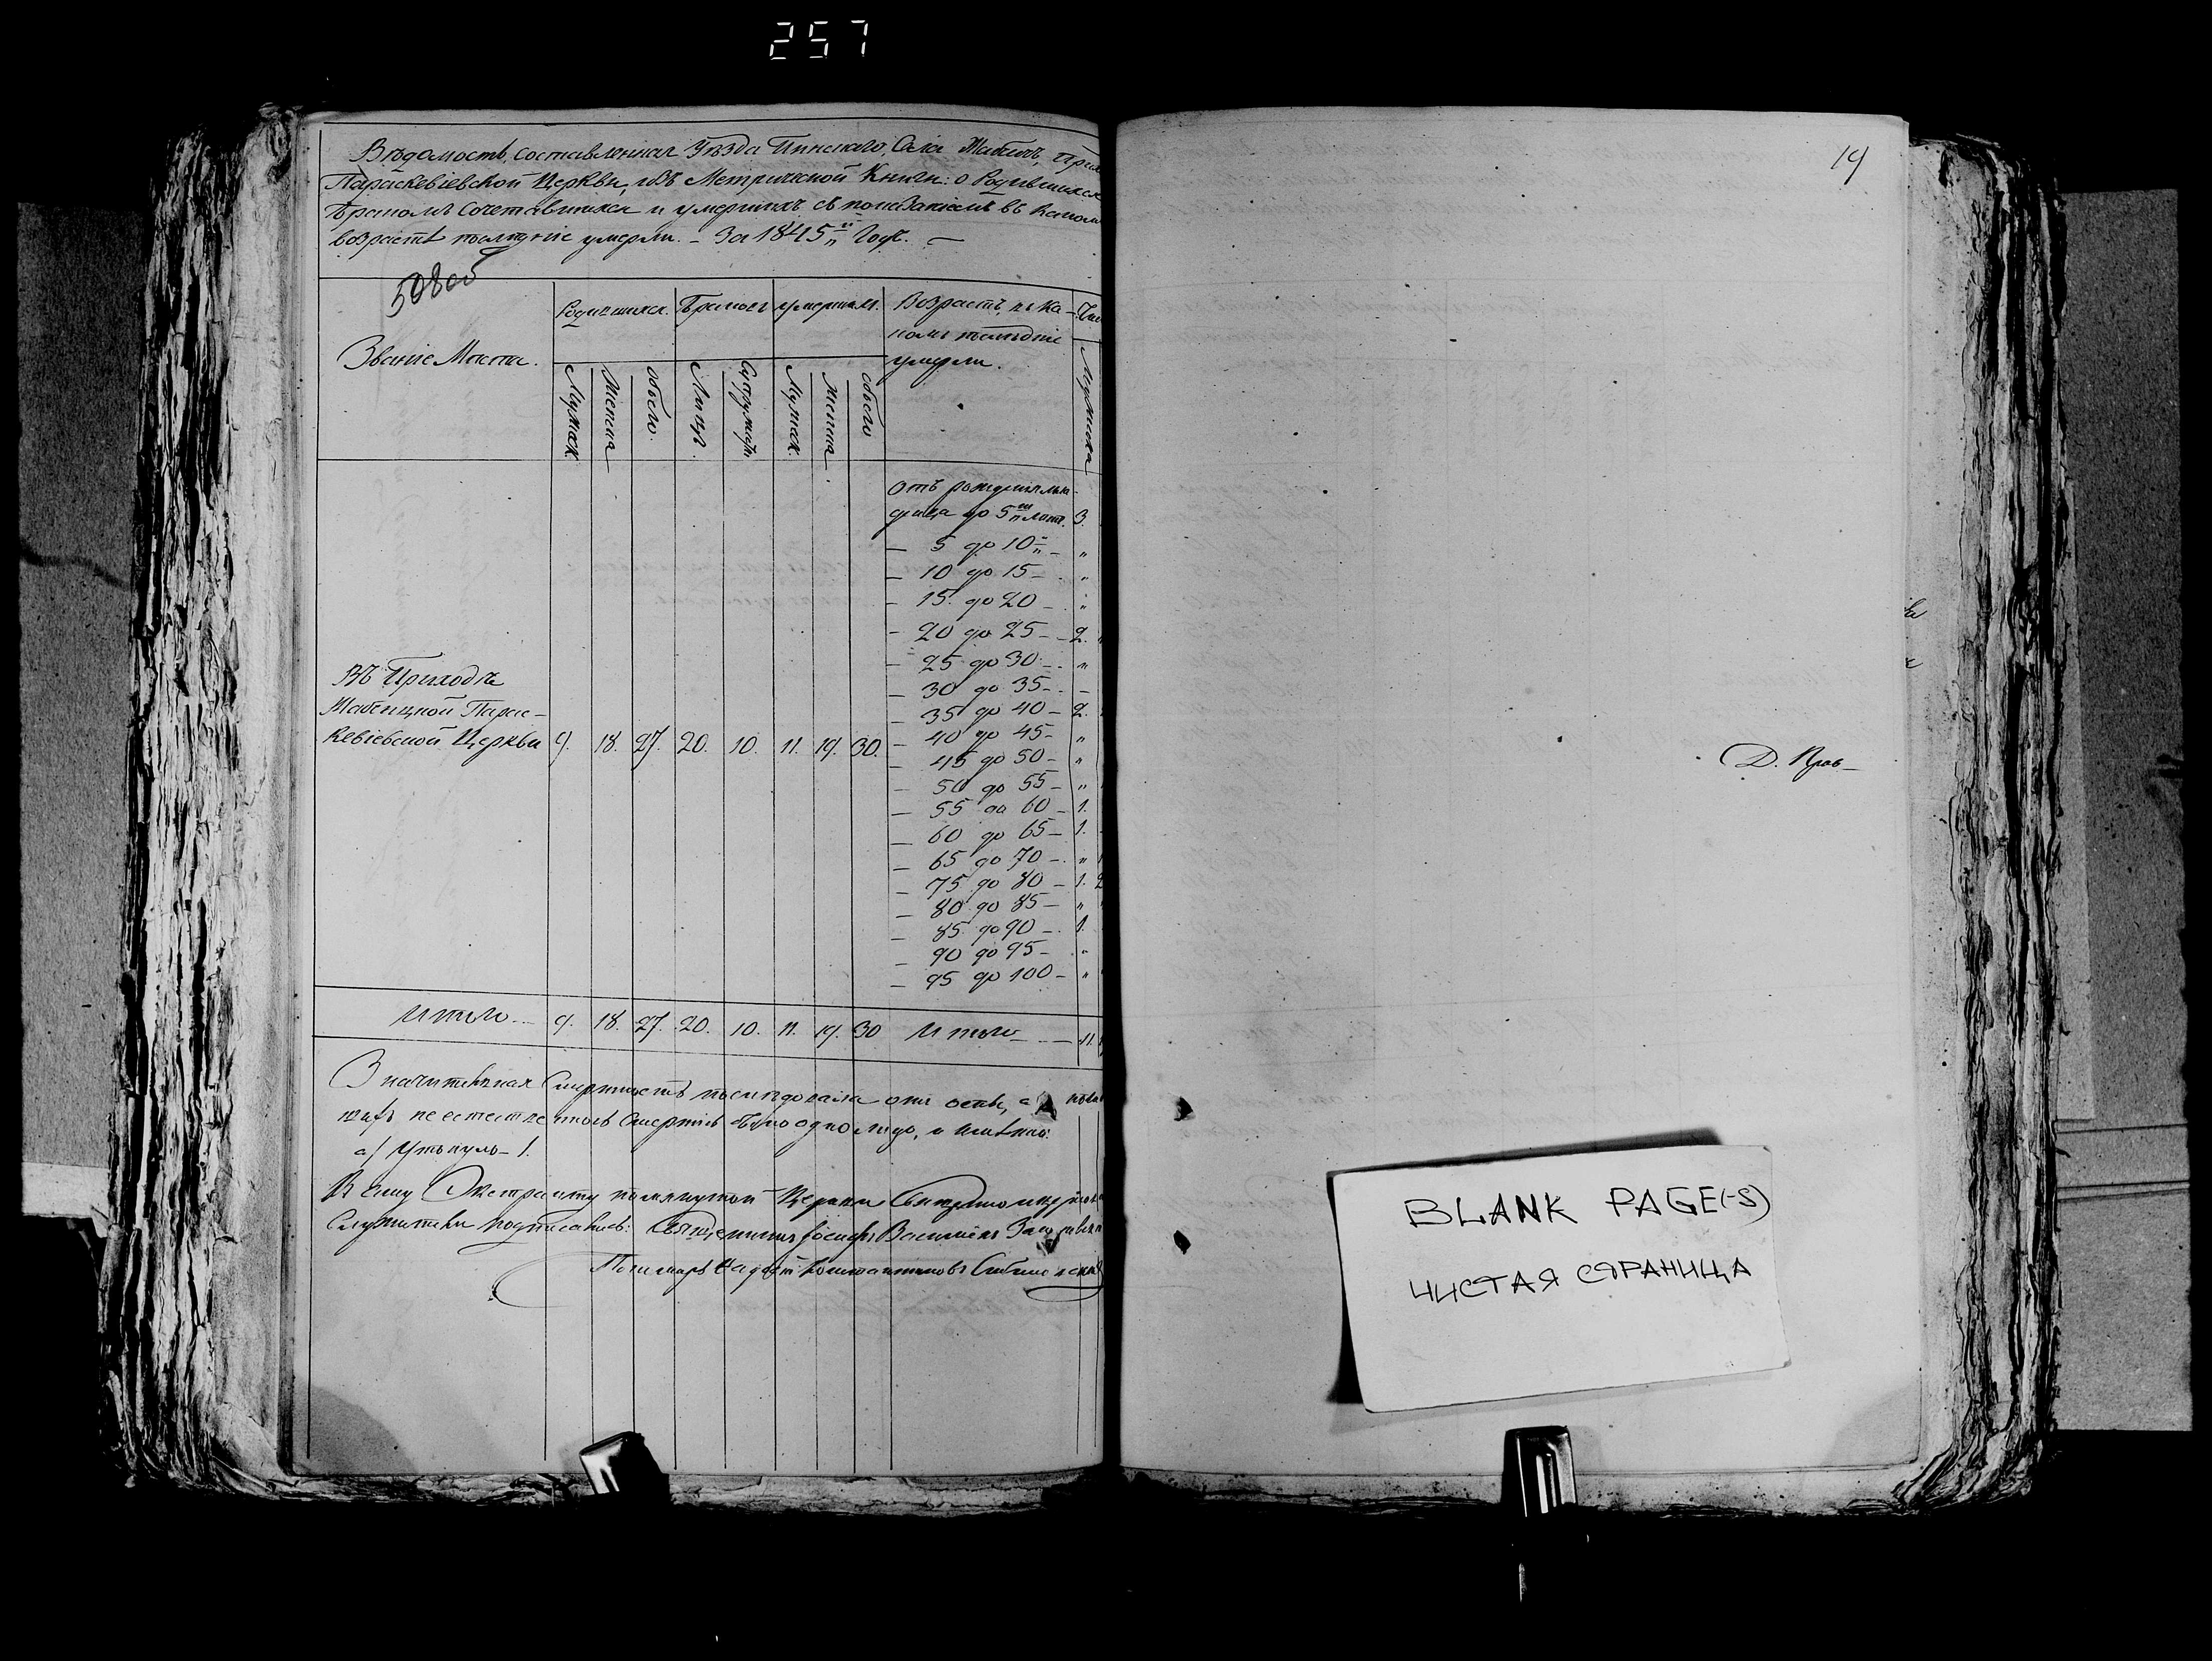 257
Вѣдомость, составленная Уѣзда Пинскаго, Села Жабчичъ, Прих
Параскевіевской Церкви, изъ Метрической Книги: о Родившихся
бракомъ сочетавшихся и умершихъ съ показаніемъ въ какомъ
возрастѣ послѣдніе умерли. – За 1845й Годъ. –
508 об
Званіе Мѣста.
Родившихся. Бракомъ умершихъ. Возрастъ, въ ка-
комъ послѣдніе
умерли.
Мужск. Женска обоего. Лицъ. Супружест. Мужск. Женска обоего Мужска
Отъ рожденія мла-
денца до 5ти лѣт. 3.
– 5 до 10 – "
– 10 до 15 – "
– 15 до 20 – "
– 20 до 25 – 2.
– 25 до 30 – "
– 30 до 35 – –
– 35 до 40 – 2.
– 40 до 45 – "
– 45 до 50 – "
– 50 до 55 – "
– 55 до 60 – 1.
– 60 до 65 – 1.
– 65 до 70 – "
– 75 до 80 – 1. 2
– 80 до 85 – "
– 85 до 90 – 1.
– 90 до 95 – "
– 95 до 100 – "
Въ Приходѣ
Парас-
кевіевской Церкви 9. 18. 27. 20. 10. 11. 19. 30.
Итого – 9. 18. 27. 20. 10. 11. 19. 30 Итого – 11.
Значительная Смертность послѣдовала отъ оспы, а
не естественною смертію было одно лицо, а именно:
а/ Утонулъ – 1.
К сему Экстракту помянутой Церкви
Служители подписались: Священникъ Іосифъ Васильевъ
Пономарь Константиновъ
19
Д. Пров–
BLANK PAGE(-S)
ЧИСТАЯ СТРАНИЦА